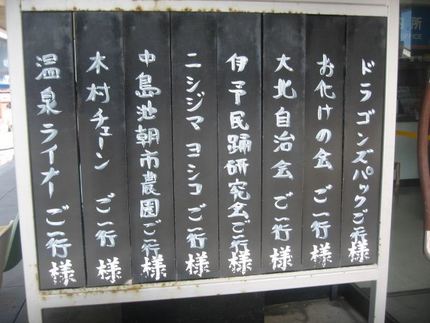 ドラゴンズパックご一行様
お化けの会 ご一行様
大北自治会 ご一行様
伊予民踊研究会ご一行様
ニシジマ ヨシコ ご一行様
中島池朝市農園ご一行様
木村チェーン ご一行様
温泉ライナー ご一行様